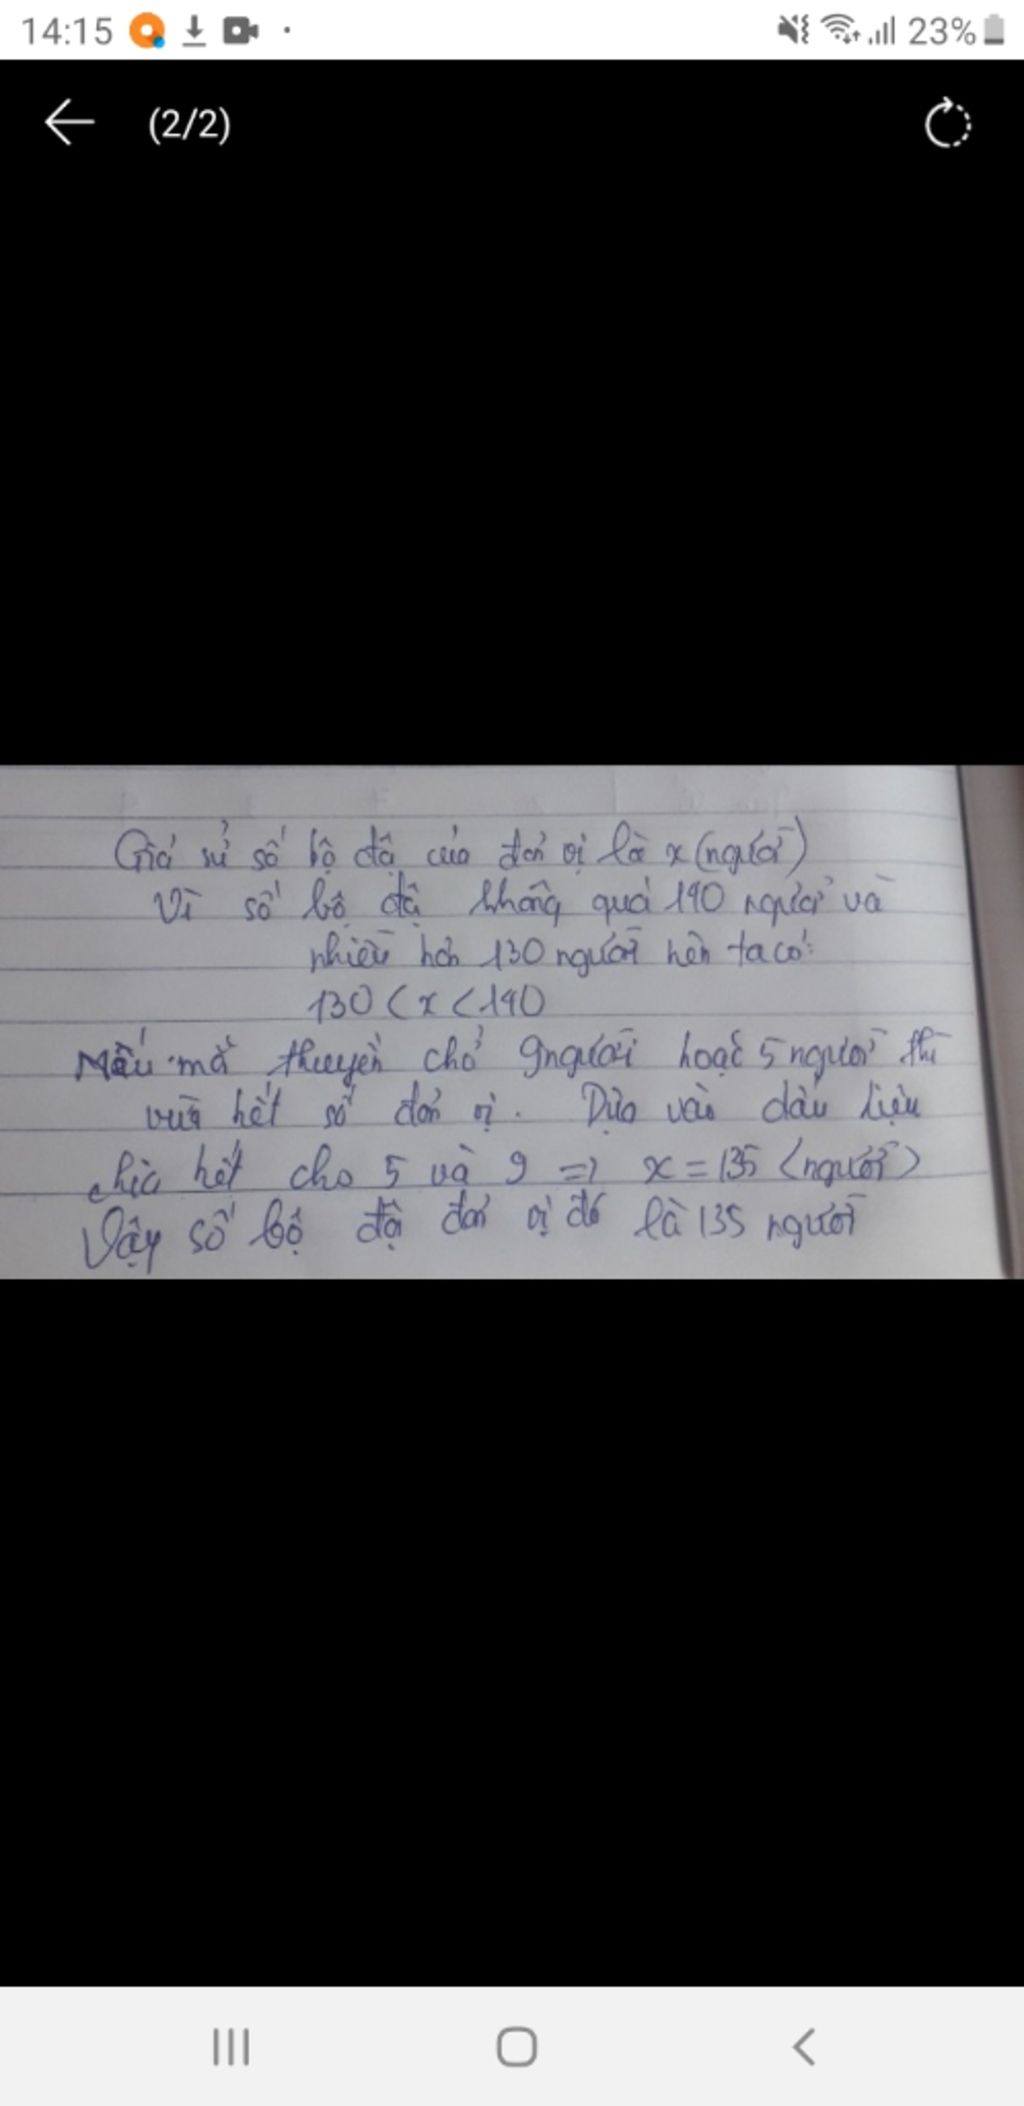 14:15
23%
(2/2)
Giả sử số bộ đội của đơn vị là x (người)
Vì số bộ đội không quá 140 người và
nhiều hơn 130 người nên ta có:
130 < x < 140
Mếu mỗ thuyền chở 9 người hoặc 5 người thì
vừa hết số đơn vị. Dựa vào dấu liệu
chia hết cho 5 và 9 => x = 135 (người)
Vậy số bộ đội đơn vị đó là 135 người